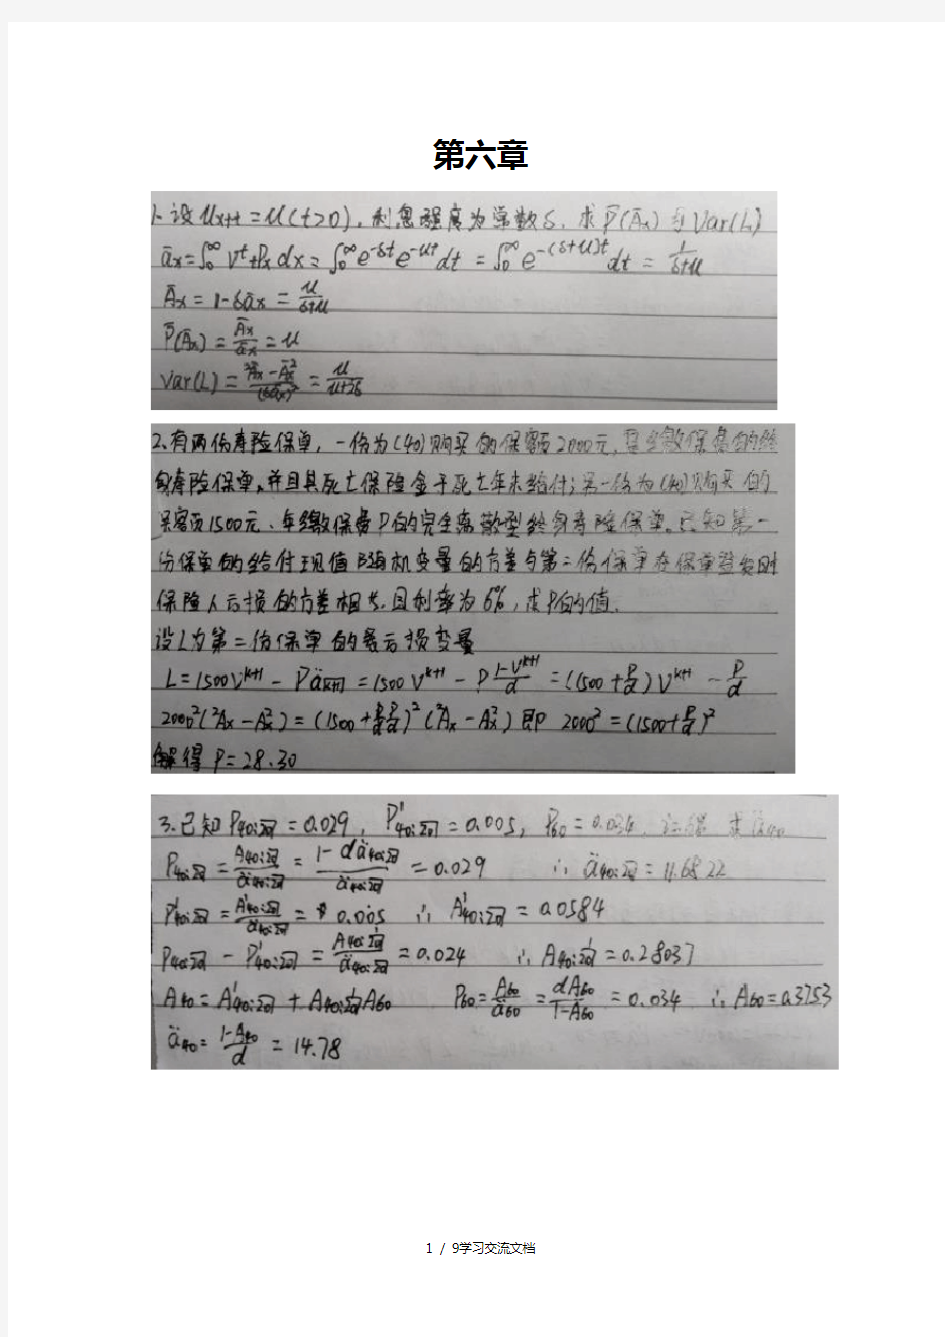 第六章
1.设 μx+t = μ(t>0), 利息强度为常数δ, 求 P̄(Āx) 与 Var(L)
āx = ∫₀^∞ v^t tPx dx = ∫₀^∞ e^-δt e^-μt dt = ∫₀^∞ e^-(δ+μ)t dt = 1/(δ+μ)
Āx = 1-δāx = μ/(δ+μ)
P̄(Āx) = Āx/āx = μ
Var(L) = (²Āx - Āx²)/(δāx)² = μ/(μ+2δ)
2.有两份寿险保单, 一份为(40)购买的保额2000元, 缴保费的终
身寿险保单, 并且其死亡保险金于死亡年末给付; 另一份为(40)购买的
保额1500元、年缴保费P的完全离散型终身寿险保单。已知第一
份保单的给付现值随机变量的方差与第二份保单在保单签发时
保险人亏损的方差相等, 且利率为6%, 求P的值.
设L为第二份保单的亏损变量
L = 1500v^k+1 - Pä_k+1 = 1500v^k+1 - P (1-v^k+1)/d = (1500 + P/d) v^k+1 - P/d
2000²(²Ax - Ax²) = (1500 + P/d)² (²Ax - Ax²) 即 2000² = (1500 + P/d)²
解得 P = 28.30
3.已知 P40:20 = 0.029, P'40:20 = 0.005, P60 = 0.034, 求 ä40
P40:20 = A40:20/ä40:20 = (1-dä40:20)/ä40:20 = 0.029 ∴ ä40:20 = 11.6822
P'40:20 = A'40:20/ä40:20 = 0.005 ∴ A'40:20 = 0.0584
P40:20 - P'40:20 = A40:20/ä40:20 = 0.024 ∴ A40:20 = 0.28037
A40 = A'40:20 + A40:20 A60 P60 = A60/ä60 = dA60/(1-A60) = 0.034 ∴ A60 = 0.3753
ä40 = (1-A40)/d = 14.78
1 / 9学习交流文档